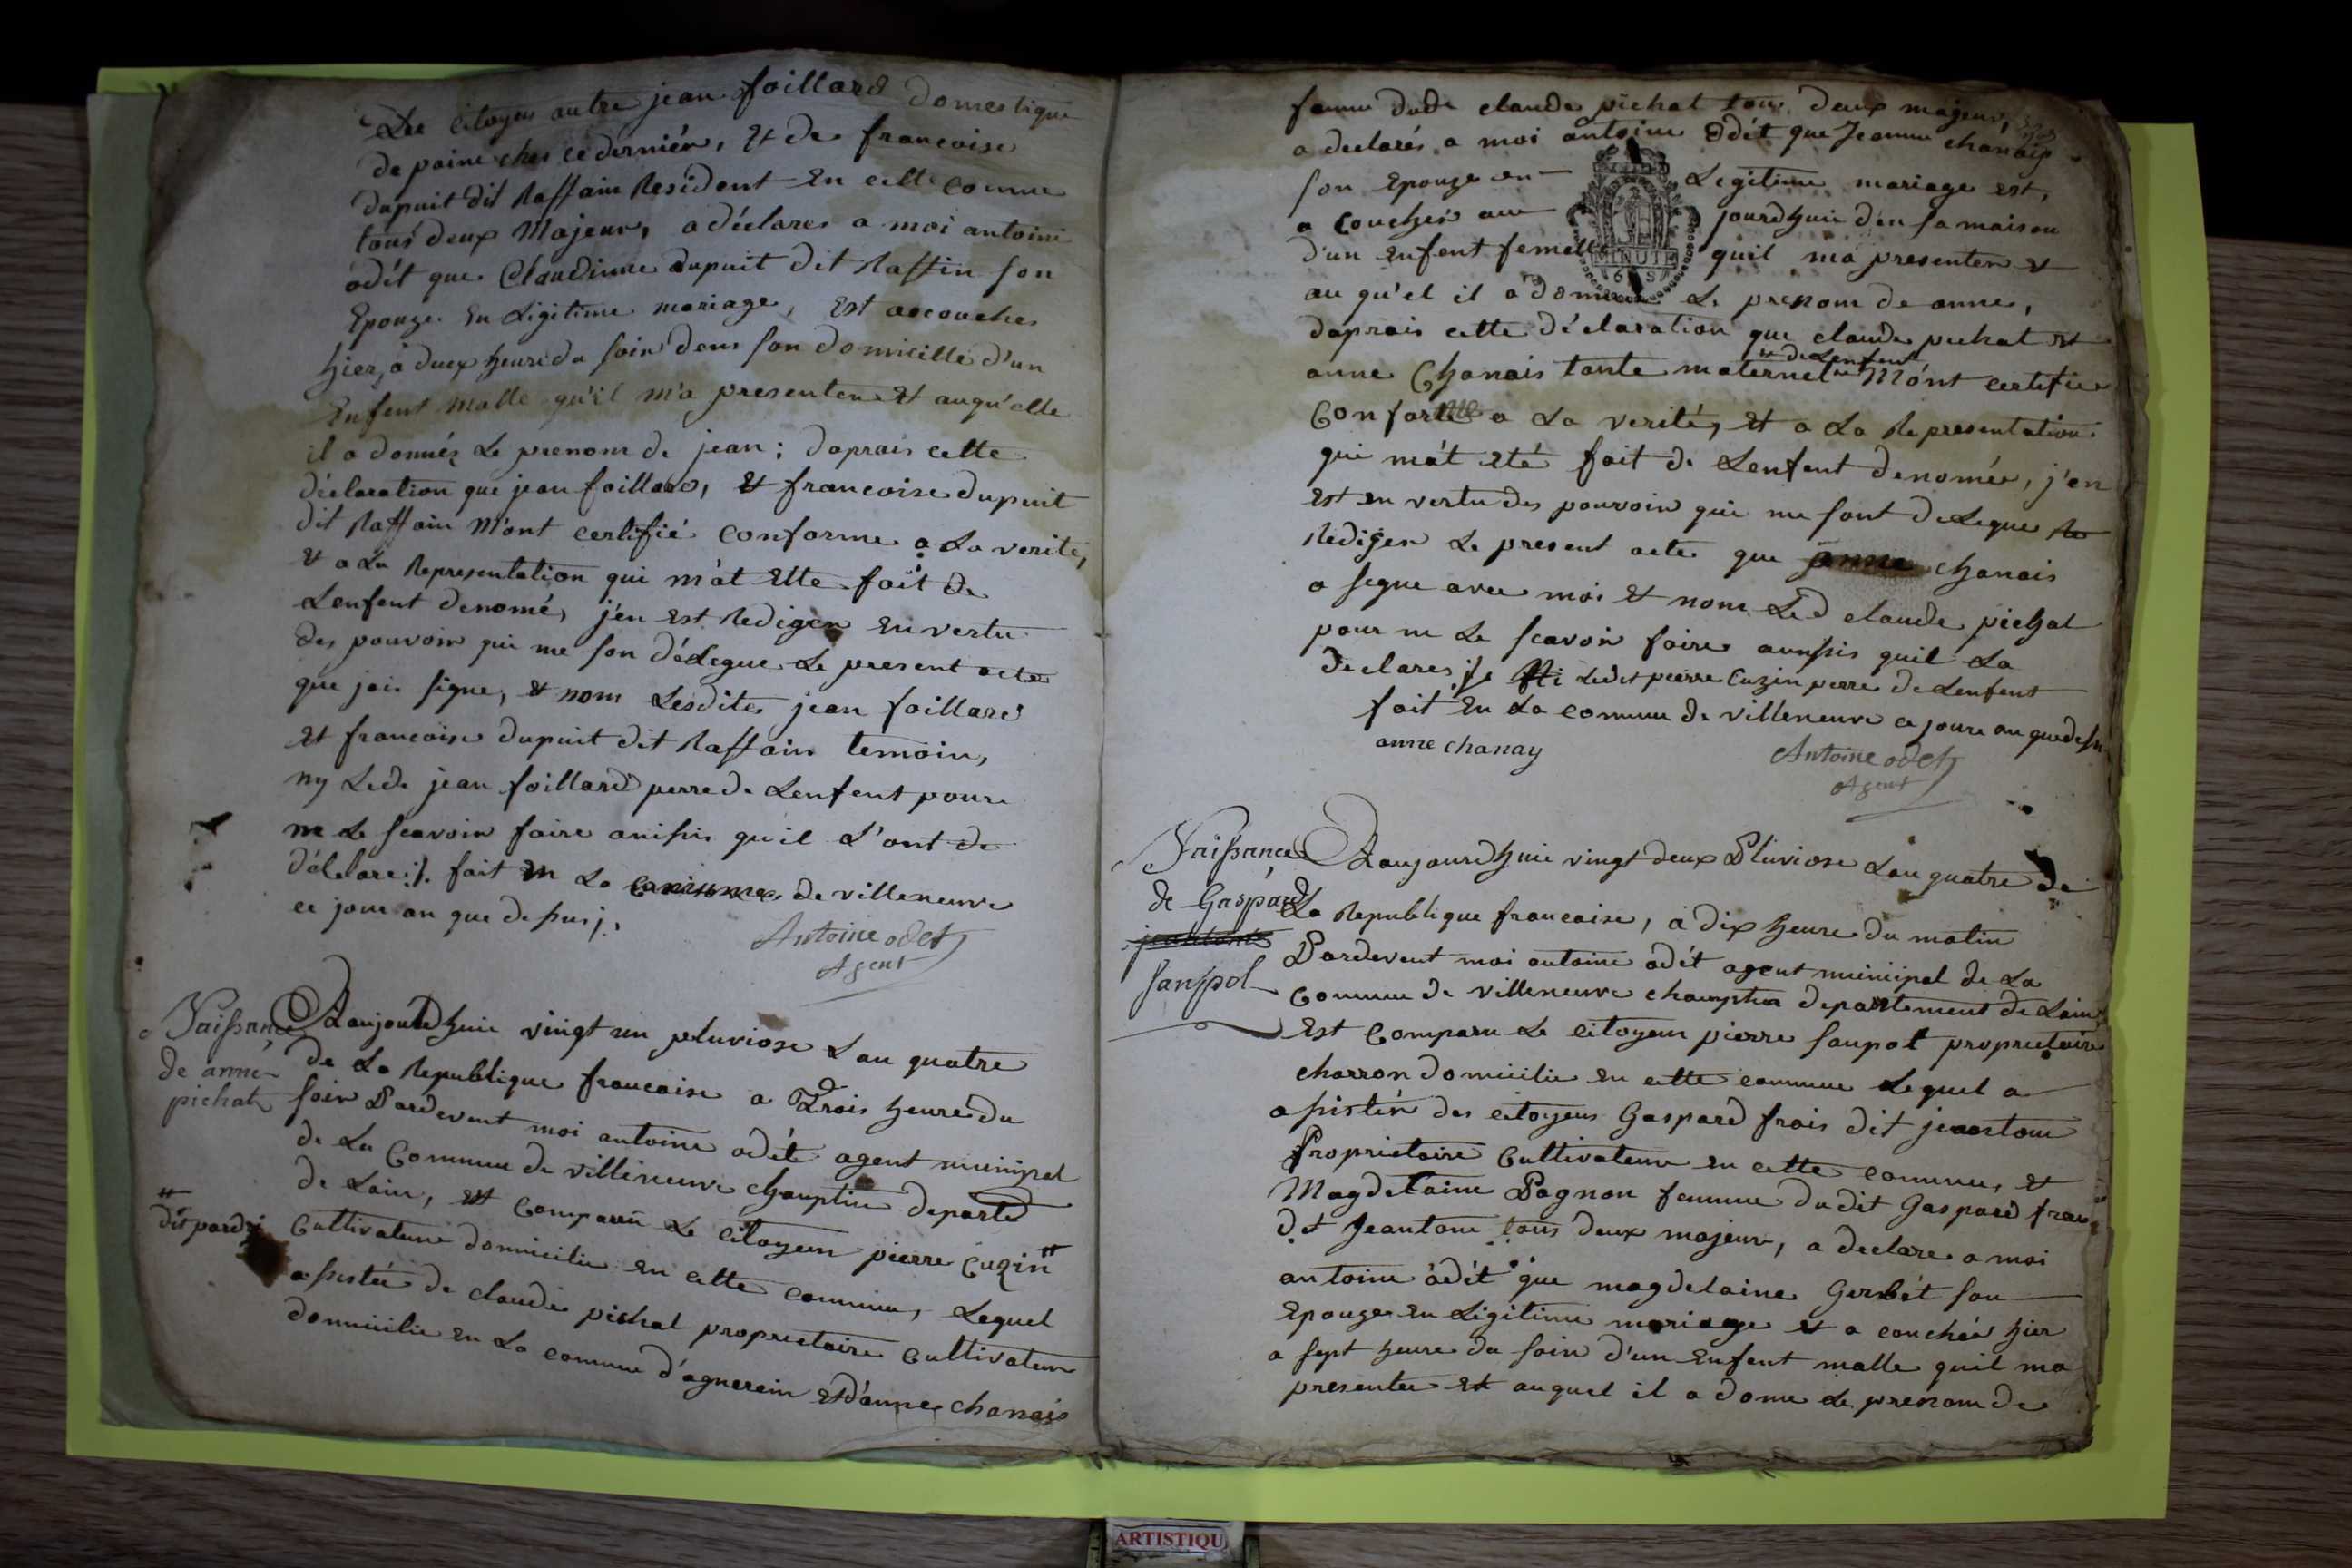 Les citoyens autre jean foillard domestique
de poine ches ce derniér, Et de francoise
dupuit dit Raffain Resident En cette comune
tous deux Majeur, a déclares a moi antoine
odét que Claudinne dupuit dit Raffin son
Epouze En Ligitime mariage, Est accouches
hier, a deux heure du soir dens son domicille d'un
Enfent malle qu'il m'a presenter Et auqu'elle
il a donnéz Le prenom de jean; daprais cette
déclaration que jean foillard, Et francoise dupuit
dit Raffain M'ont certifié conforme a La verite,
Et a La Representation qui m'at Ette fait de
Lenfent denomé, j'en Est Rediger En vertu
des pouvoir qui me son délegue Le present acte
que jais signe, Et nom Lesdites jean foillard
Et francoise dupuit dit Raffain temoin,
ny Lede jean foillard perre de Lenfent pour
ne Le scavoir faire anissis qu'il L'ont de
déclare ;/. fait En La comune de villeneuve
ce jour an que dessus ;.
Antoine odet
Agent
Naissance
de anne
pichat
Aaujourdhuie vingt un pluviose Lan quatre
de La Republique francaise a Trois heure du
soir Pardevent moi antoine odét agent municipal
de La Commune de villeneuve champtier departe
de Lain, Est Comparu Le citoyen pierre Cuzin #
# dit pardy
Cultivateur domicilie en cette commune, Lequel
assistée de claude pichat proprietaire Cultivateur
domicilie en La comune d'agnerein Et d'anne chanais
femme dude claude pichat tous deux majeur,
a declarés a moi antoine Odét que Jeanne chanais
son Epouze en Legitime mariage est,
a couchéé au jourdhuie d'en sa maison
d'un Enfent femelle MINUTE quil ma presenter Et
au qu'el il a donné Le prenom de anne,
daprais cette déclaration que claude pichat Et
anne Chanais tante maternel # de Lenfent M'ont certifie
Conforme a La verité, Et a La Representation
qui m'at Eté fait de Lenfent denomée, j'en
est en vertu des pouvoir qui me sont delegue Re
Rediger Le present acte que anne chanais
a segne avec moi Et nom Led claude pichat
pour ne Le scavoir faire aunssis quil La
declares ;/. Ledit pierre Cuzin perre de Lenfent
fait En La comune de villeneuve ce jour an que dessu
anne chanay
Antoine odet
Agent
Naissance
de Gaspard
sanpol
Aaujourdhuie vingt deux Pluviose Lan quatre de
La Republique francaise, a dix heure du matin
Pardevent moi antoine odét agent municipal de La
Comune de villeneuve champtier departement de Lain
Est Comparu Le citoyen pierre sanpol proprietaire
charron domicilie en cette commune Lequel a
assistér des citoyens Gaspard frais dit jeantoun
Proprietaire Cultivateur en cette comune, Et
Magdelaine Pagnon femme dudit Gaspard frais
dit Jeantone tous deux majeur, a declare a moi
antoine odét que magdelaine Gerbét son
Epouze en Ligitime mariage Et a couchée hier
a sept heure du soir d'un Enfent malle quil ma
presenter Et auquel il a donne Le prenom de
ARTISTIQU